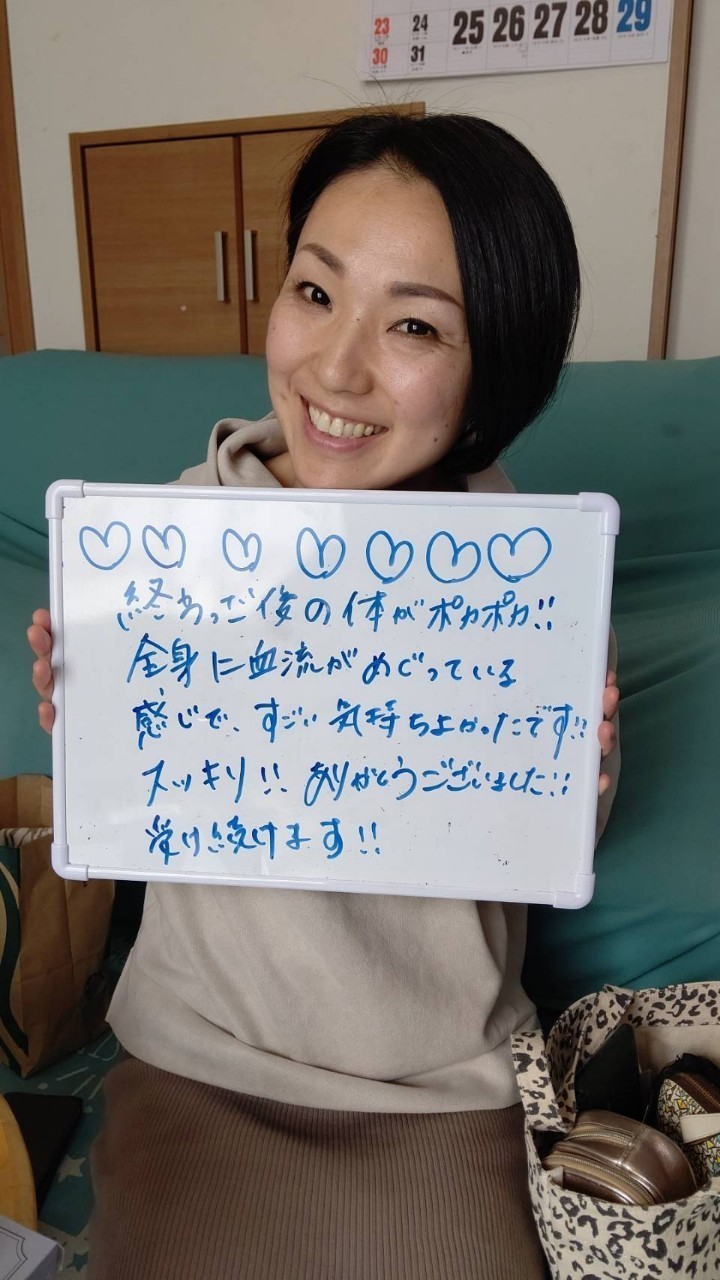 23 24 25 26 27 28 29
30 31
終わった後の体がポカポカ!!
全身に血流がめぐっている
感じで、すごい気持ちよかったです!!
スッキリ!! ありがとうございました!!
受け続けます!!